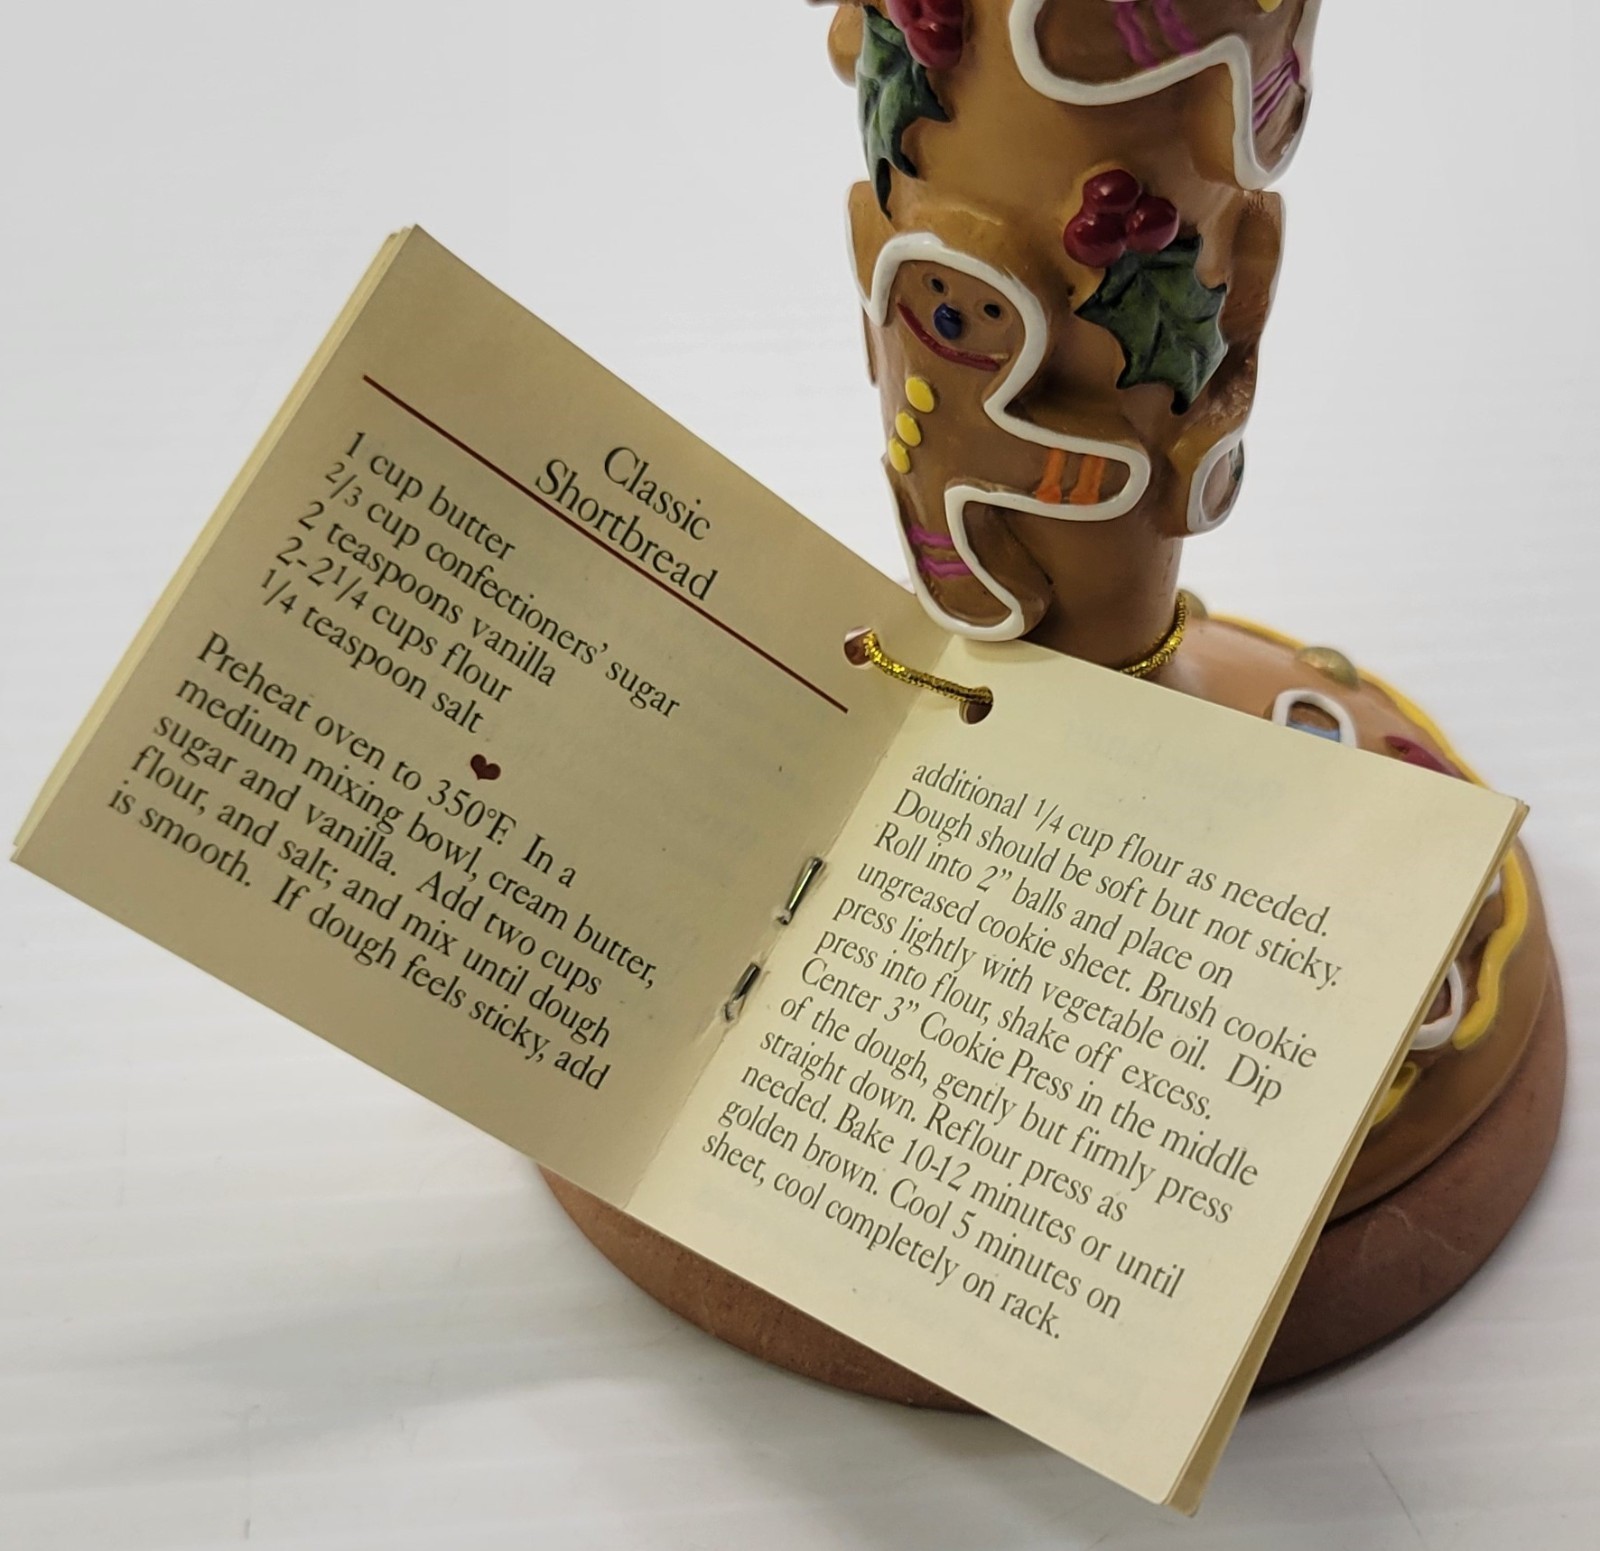 Classic
Shortbread
1 cup butter
2/3 cup confectioners' sugar
2 teaspoons vanilla
2-2 1/4 cups flour
1/4 teaspoon salt
Preheat oven to 350°F. In a
medium mixing bowl, cream butter,
sugar and vanilla. Add two cups
flour, and salt; and mix until dough
is smooth. If dough feels sticky, add
additional 1/4 cup flour as needed.
Dough should be soft but not sticky.
Roll into 2” balls and place on
ungreased cookie sheet. Brush cookie
press lightly with vegetable oil. Dip
press into flour, shake off excess.
Center 3” Cookie Press in the middle
of the dough, gently but firmly press
straight down. Reflour press as
needed. Bake 10-12 minutes or until
golden brown. Cool 5 minutes on
sheet, cool completely on rack.